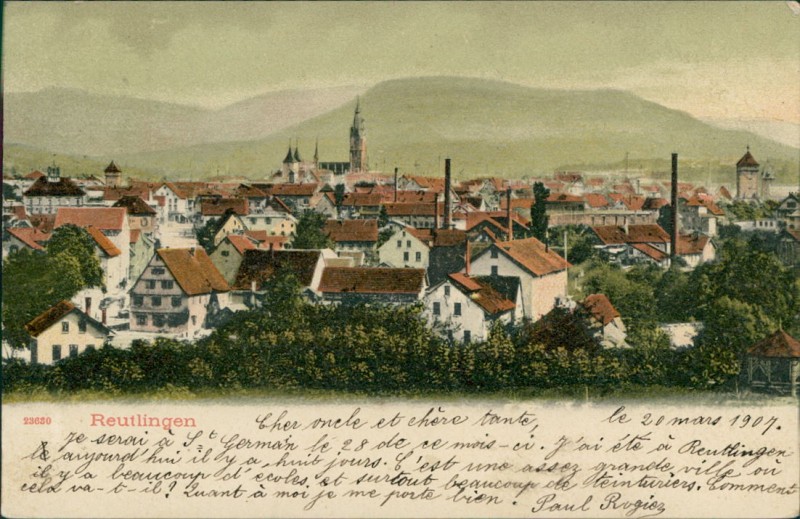 23630 Reutlingen
Cher oncle et chère tante, le 20 mars 1907.
Je serai à St Germain le 28 de ce mois-ci. J'ai été à Reutlingen
aujourd'hui il y a huit jours. C'est une assez grande ville où
il y a beaucoup d'écoles et surtout beaucoup de teinturiers. Comment
cela va-t-il? Quant à moi je me porte bien. Paul